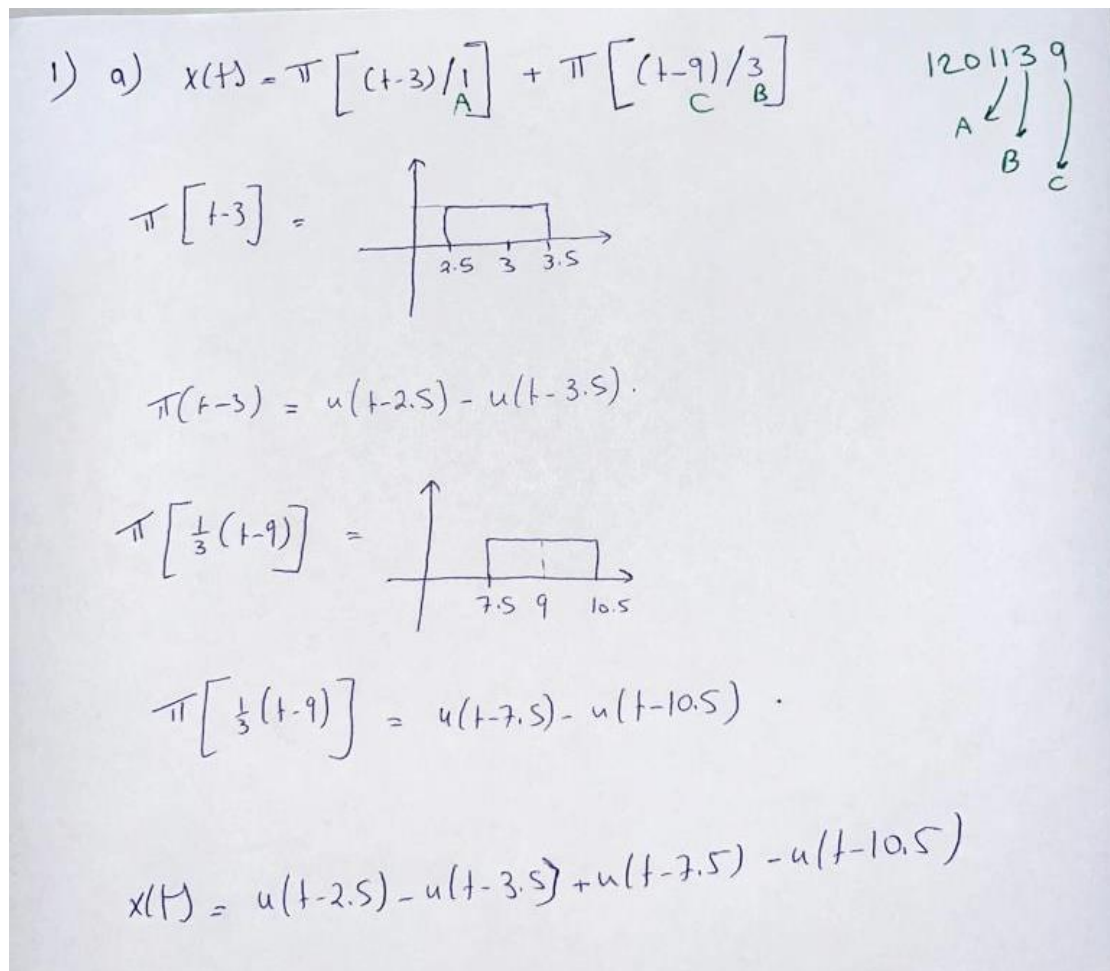 1) a) x(t) = π [(t-3)/1] + π [(t-9)/3]
A C B
1201139
A
B
C
π [t-3] =
2.5 3 3.5
π(t-3) = u(t-2.5) - u(t-3.5).
π [1/3 (t-9)] =
7.5 9 10.5
π [1/3 (t-9)] = u(t-7.5) - u(t-10.5) .
x(t) = u(t-2.5) - u(t-3.5) + u(t-7.5) - u(t-10.5)